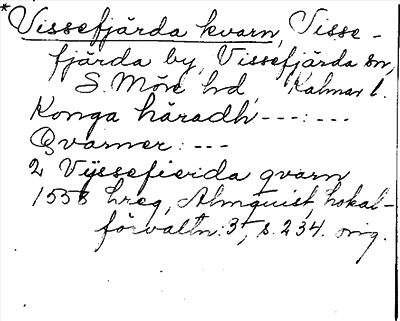 *Vissefjärda kvarn, Visse-
fjärda by, Vissefjärda sn,
S. Möre hd, Kalmar l.
Konga häradh ---:---
Qvarner: ---
2 Vÿssefierda qvarn
1558 hreg, Almquist, Lokal-
förvaltn. 3, s. 234. orig.